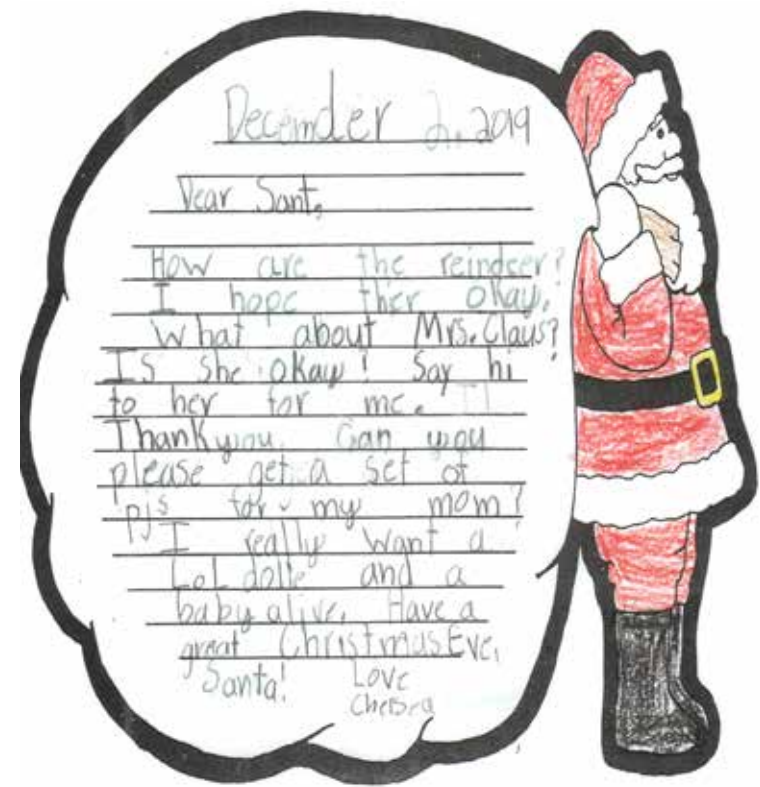 December 2, 2019
Dear Sant,
How are the reindeer?
I hope ther okay.
What about Mrs. Claus?
Is she okay! Say hi
to her for me.
Thank you. Can you
please get a set of
pjs for my mom?
I really want a
LoL dolle and a
baby alive. Have a
great Christmas Eve,
Santa! Love
Chelsea